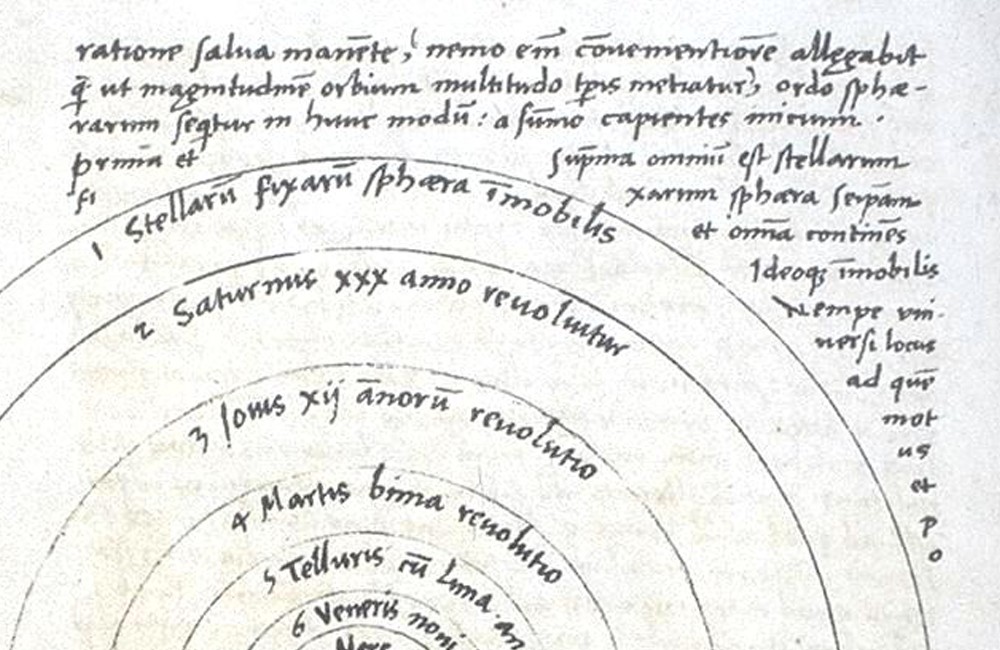 ratione salua manēte, nemo em̄ cōuenientiorē allęgabit
q̄ ut magnitudinē orbium multitudo tp̄is metiatur, ordo sphæ-
rarum seq̄tur in hunc modū: a sum̄o capientes initium.
prima et Supma omniū est stellarum
fi xarum sphæra seipām
et om̄ia continēs
Ideoqʒ im̄obilis
Nempe vni-
uersi locus
ad quē
mot
us
et
p
o
1 Stellarū fixarū sphæra im̄obilis
2 Saturnus xxx anno reuoluitur
3 Iouis xij an̄orū reuolutio
4 Martis bima reuolutio
5 Telluris cū luna an
6 Veneris noni
Merc